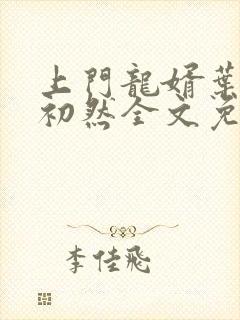 上門龍婿葉
初然全文免
李佳飛